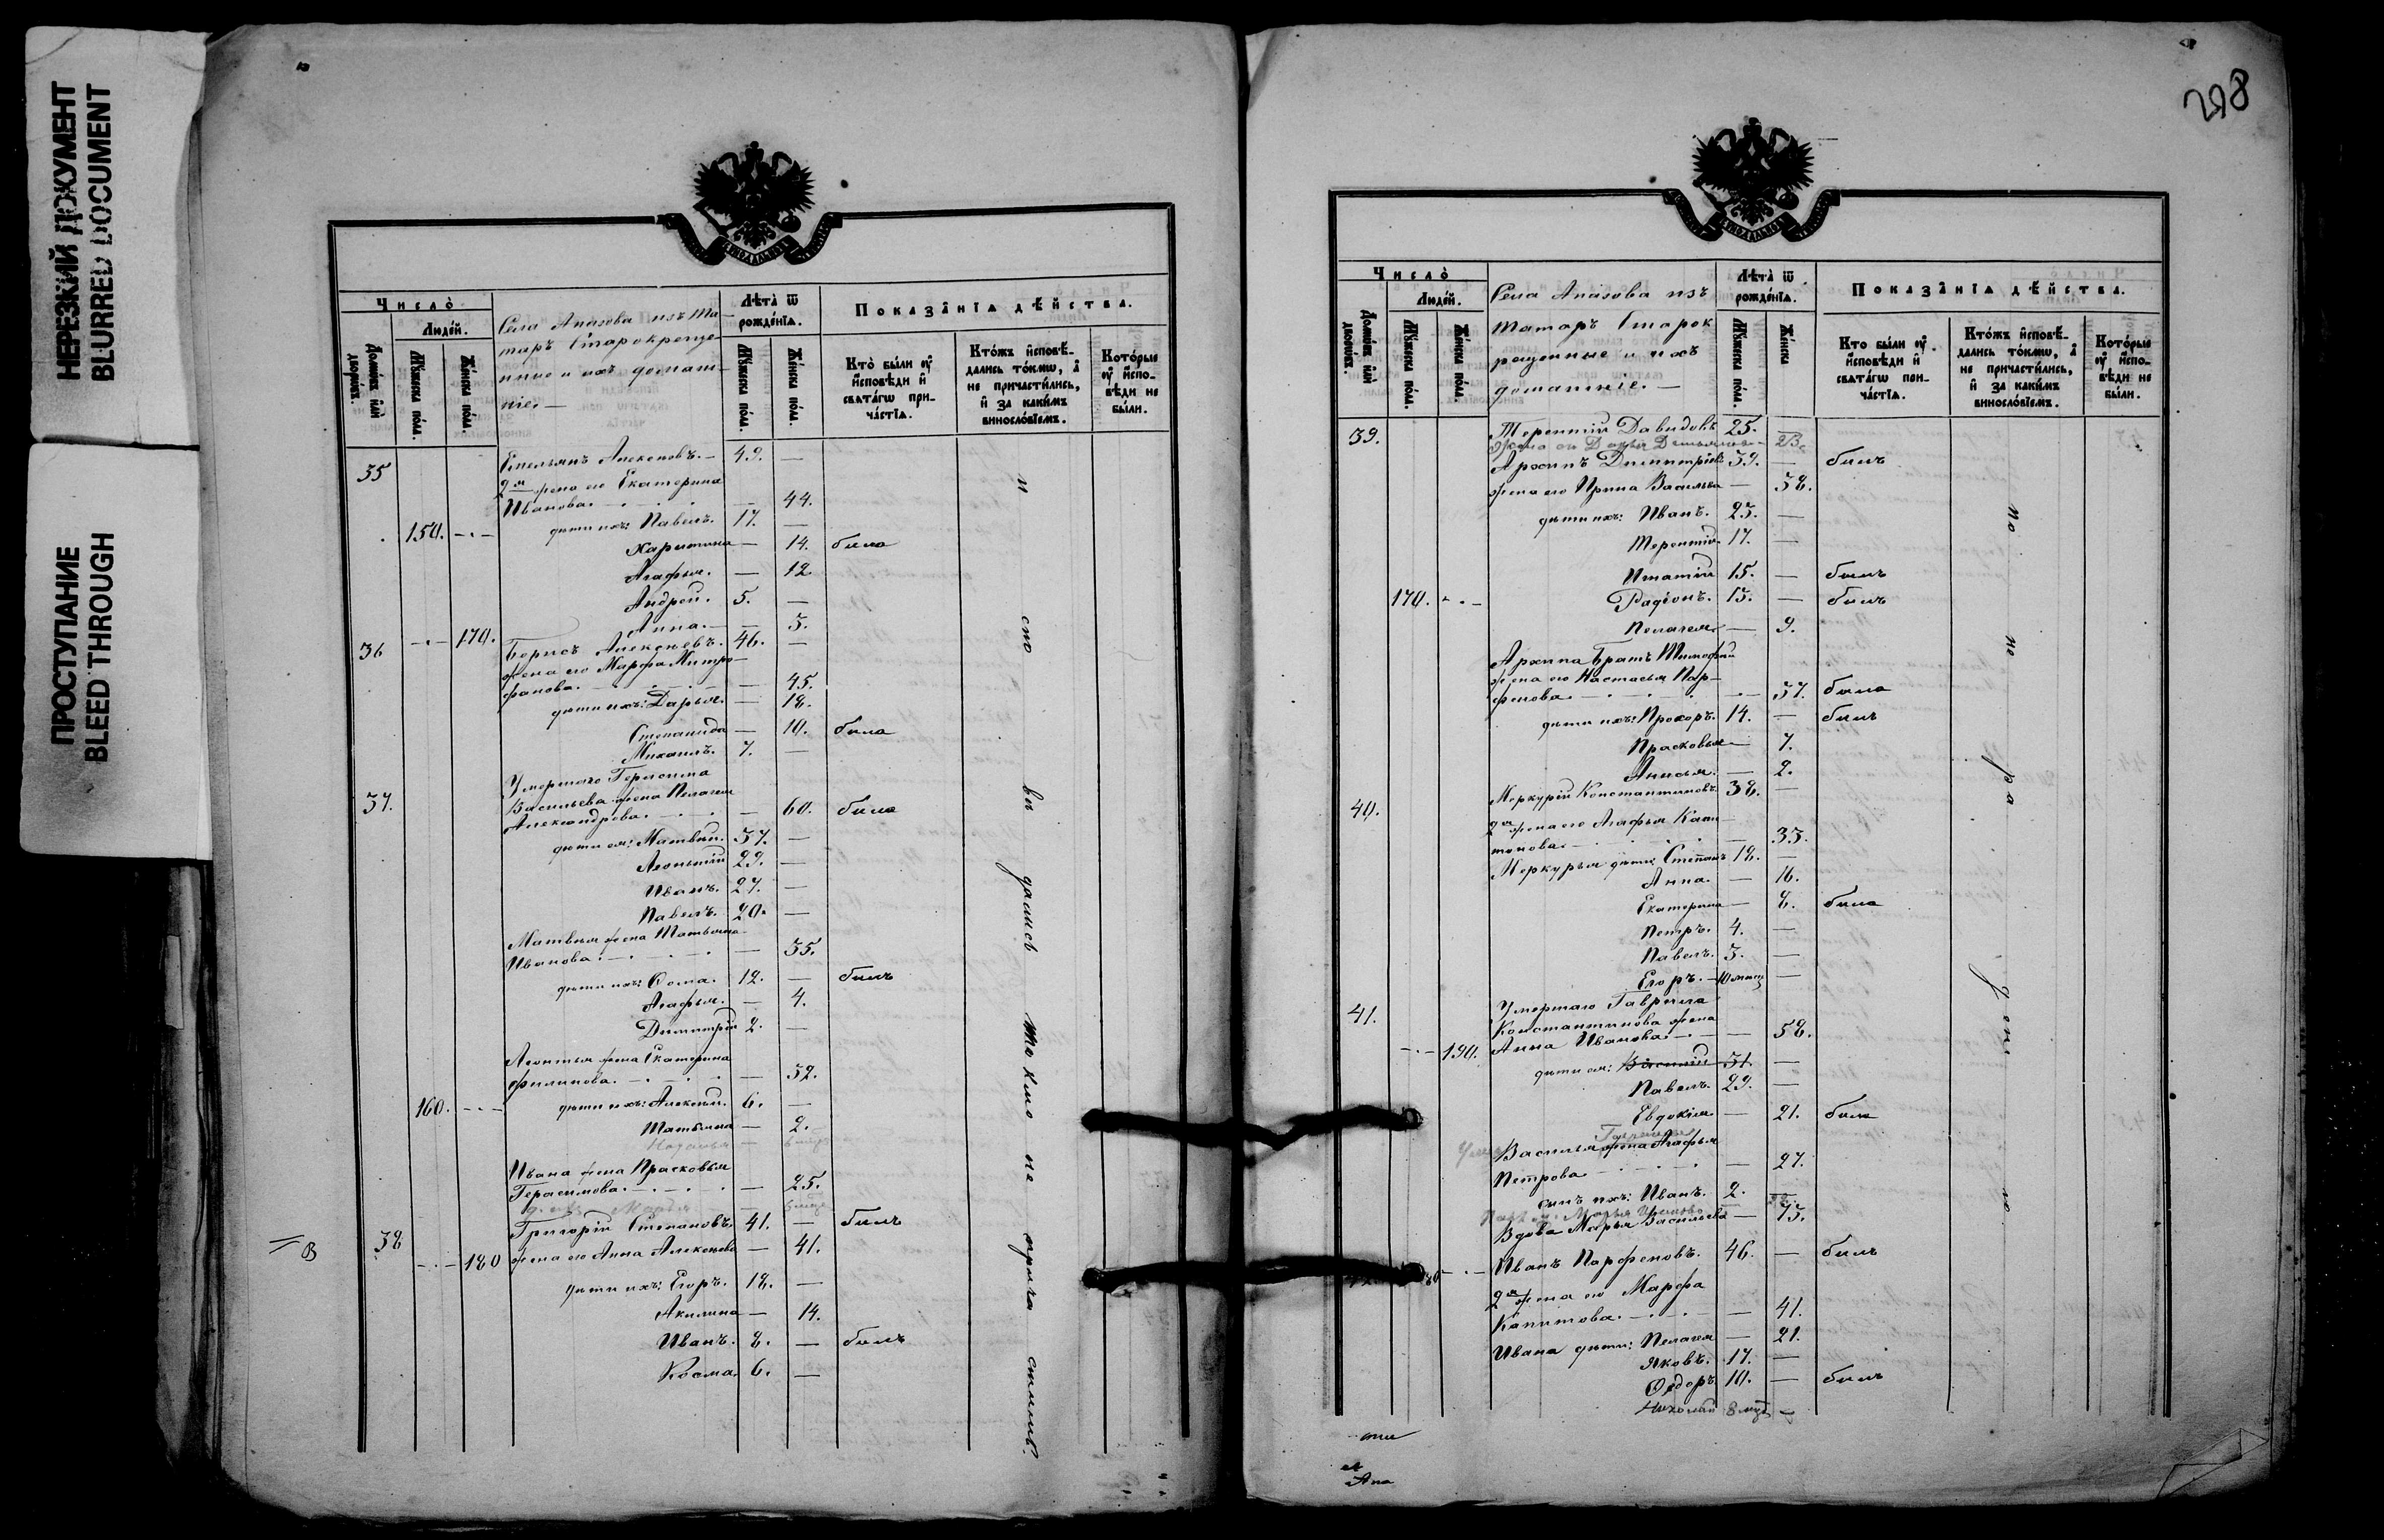 НЕРЕЗКИЙ ДОКУМЕНТ
BLURRED DOCUMENT
ПРОСТУПАНИЕ
BLEED THROUGH
Число̀
Людей.
Домѡвъ или дворѡвъ.
Мꙋжеска полꙋ.
Женска полꙋ.
Села Апазова изъ Та-
таръ Старокреще-
нные и ихъ домаш-
ніе. —
Лѣта̀ ѿ рожденїѧ.
Мꙋжеска полꙋ.
Женска полꙋ.
Показанїѧ дѣйства.
Кто̀ были ᲂу҆ исповѣди и свѧтагѡ причастїѧ.
Ктожъ исповѣдались токмѡ, а҆ не причастились, и за какимъ винословїемъ.
Которые ᲂу҆ исповѣди не были.
35 Емельянъ Алексеевъ. — 49. —
2я жена его Екатерина
Иванова. — 44.
150. дѣти ихъ: Павелъ. 17. —
Харитина — 14. была
Агафья. — 12
Андрей. 5. —
170. Анна. — 3.
36 Борисъ Алексѣевъ. 46. —
жена его Марфа Митро-
фанова. — 45.
дѣти ихъ: Дарья. — 18.
Степанида — 10. была
Михаилъ. 7. —
37. Умершаго Герасима
Васильева жена Пелагея
Александрова. — 60. была
дѣти ея: Матвѣй. 37. —
Леонтій 29. —
Иванъ. 27. —
Павелъ. 20. —
Матвѣя жена Татьяна
Иванова. — 35.
дѣти ихъ: Ѳома. 12. — былъ
Агафья. — 4.
Димитрій 2. —
Леонтья жена Екатерина
Филипова. — 32.
160. дѣти ихъ: Алексѣй. 6. —
Татьяна — 2.
Ивана жена Прасковья
Герасимова. — 25.
Марья
38 Григорій Степановъ. 41. — былъ
В
180 жена его Анна Алексѣева — 41.
дѣти ихъ: Егоръ. 18. —
Акилина — 14.
Иванъ. 8. — былъ
Косма. 6. —
и спо вѣ дались токмо не прича стились.
298
Число̀
Людей.
Домѡвъ или дворѡвъ.
Мꙋжеска полꙋ.
Женска полꙋ.
Села Апазова изъ
татаръ Старок
рещенные и ихъ
домашніе. —
Лѣта̀ ѿ рожденїѧ.
Мꙋжеска полꙋ.
Женска
Показанїѧ дѣйства.
Кто были ᲂу҆ исповѣди и свѧтагѡ причастїѧ.
Ктожъ исповѣдались токмѡ, а҆ не причастились, и за какимъ винословїемъ.
Которые ᲂу҆ исповѣди не были.
39. Терентій Давидовъ 25. —
жена его Дарья 23.
Архипъ Димитріевъ 39. — былъ
жена его Ирина Василева — 38.
дѣти ихъ: Иванъ. 23. —
Терентій. 17. —
Игнатій 15. — былъ
170. Радіонъ. 13. — былъ
Пелагея. — 9.
Архипа братъ Тимофей
жена его Настасья Пар-
фенова. — 37. была
дѣти ихъ: Прохоръ. 14. — былъ
Прасковья — 7.
Анисья. — 2.
40. Меркурій Константиновъ. 38. —
2я жена его Агафья Капи-
тонова. — 33.
Меркурья дѣти: Степанъ 18. —
Анна. — 16.
Екатерина — 8. была
Петръ. 4. —
Павелъ. 3. —
Егоръ. — 10 мѣсяц —
41. Умершаго Гавриила
Константинова жена
190. Анна Иванова. — 58.
дѣти ея: Василій 31. —
Павелъ. 29. —
Евдокія — 21. была
Василья жена Агафья
Петрова — 27.
сынъ ихъ: Иванъ. 2.
Вдова Марья Васильева — 73.
Иванъ Парфеновъ. 46. — былъ
2я жена его Марфа
Капитова. — 41.
Ивана дѣти: Пелагея — 21.
Яковъ. 17. —
Ѳедоръ. 10. — былъ
Николай 8 мѣс —
то же ра д ені ю
Апа